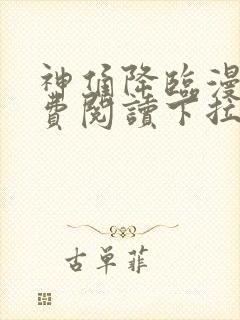 神俑降臨漫
費閱讀下拉
古單菲